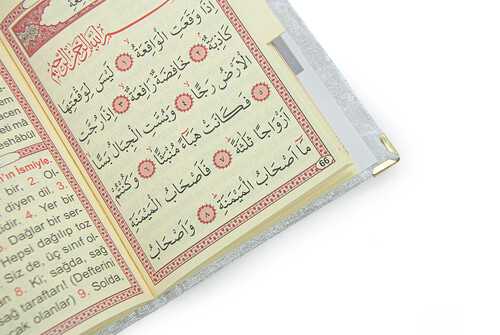 بِسْمِ اللّٰهِ الرَّحْمٰنِ الرَّحِيمِ
اِذَا وَقَعَتِ الْوَاقِعَةُۙ ١ لَيْسَ لِوَقْعَتِهَا
كَاذِبَةٌۢ ٢ خَافِضَةٌ رَافِعَةٌۙ ٣ اِذَا رُجَّتِ
الْاَرْضُ رَجًّاۙ ٤ وَبُسَّتِ الْجِبَالُ بَسًّاۙ ٥
فَكَانَتْ هَبَٓاءً مُنْبَثًّاۙ ٦ وَكُنْتُمْ
اَزْوَاجًا ثَلٰثَةًۜ ٧ فَاَصْحَابُ الْمَيْمَنَةِ
مَٓا اَصْحَابُ الْمَيْمَنَةِۜ ٨ وَاَصْحَابُ
66
eti mâ
eshâbül
n'ın İsmiyle.
bir. 2. Ol-
diyen dil.
3.
dir. 4. Yer bir
Dağlar bir ser-
Hepsi dağılıp toz
Siz de, üç sınıf ol-
8. Ki; sağda, sağ
sağ taraftarı! (Defterini
rak olanlar) 9. Solda,